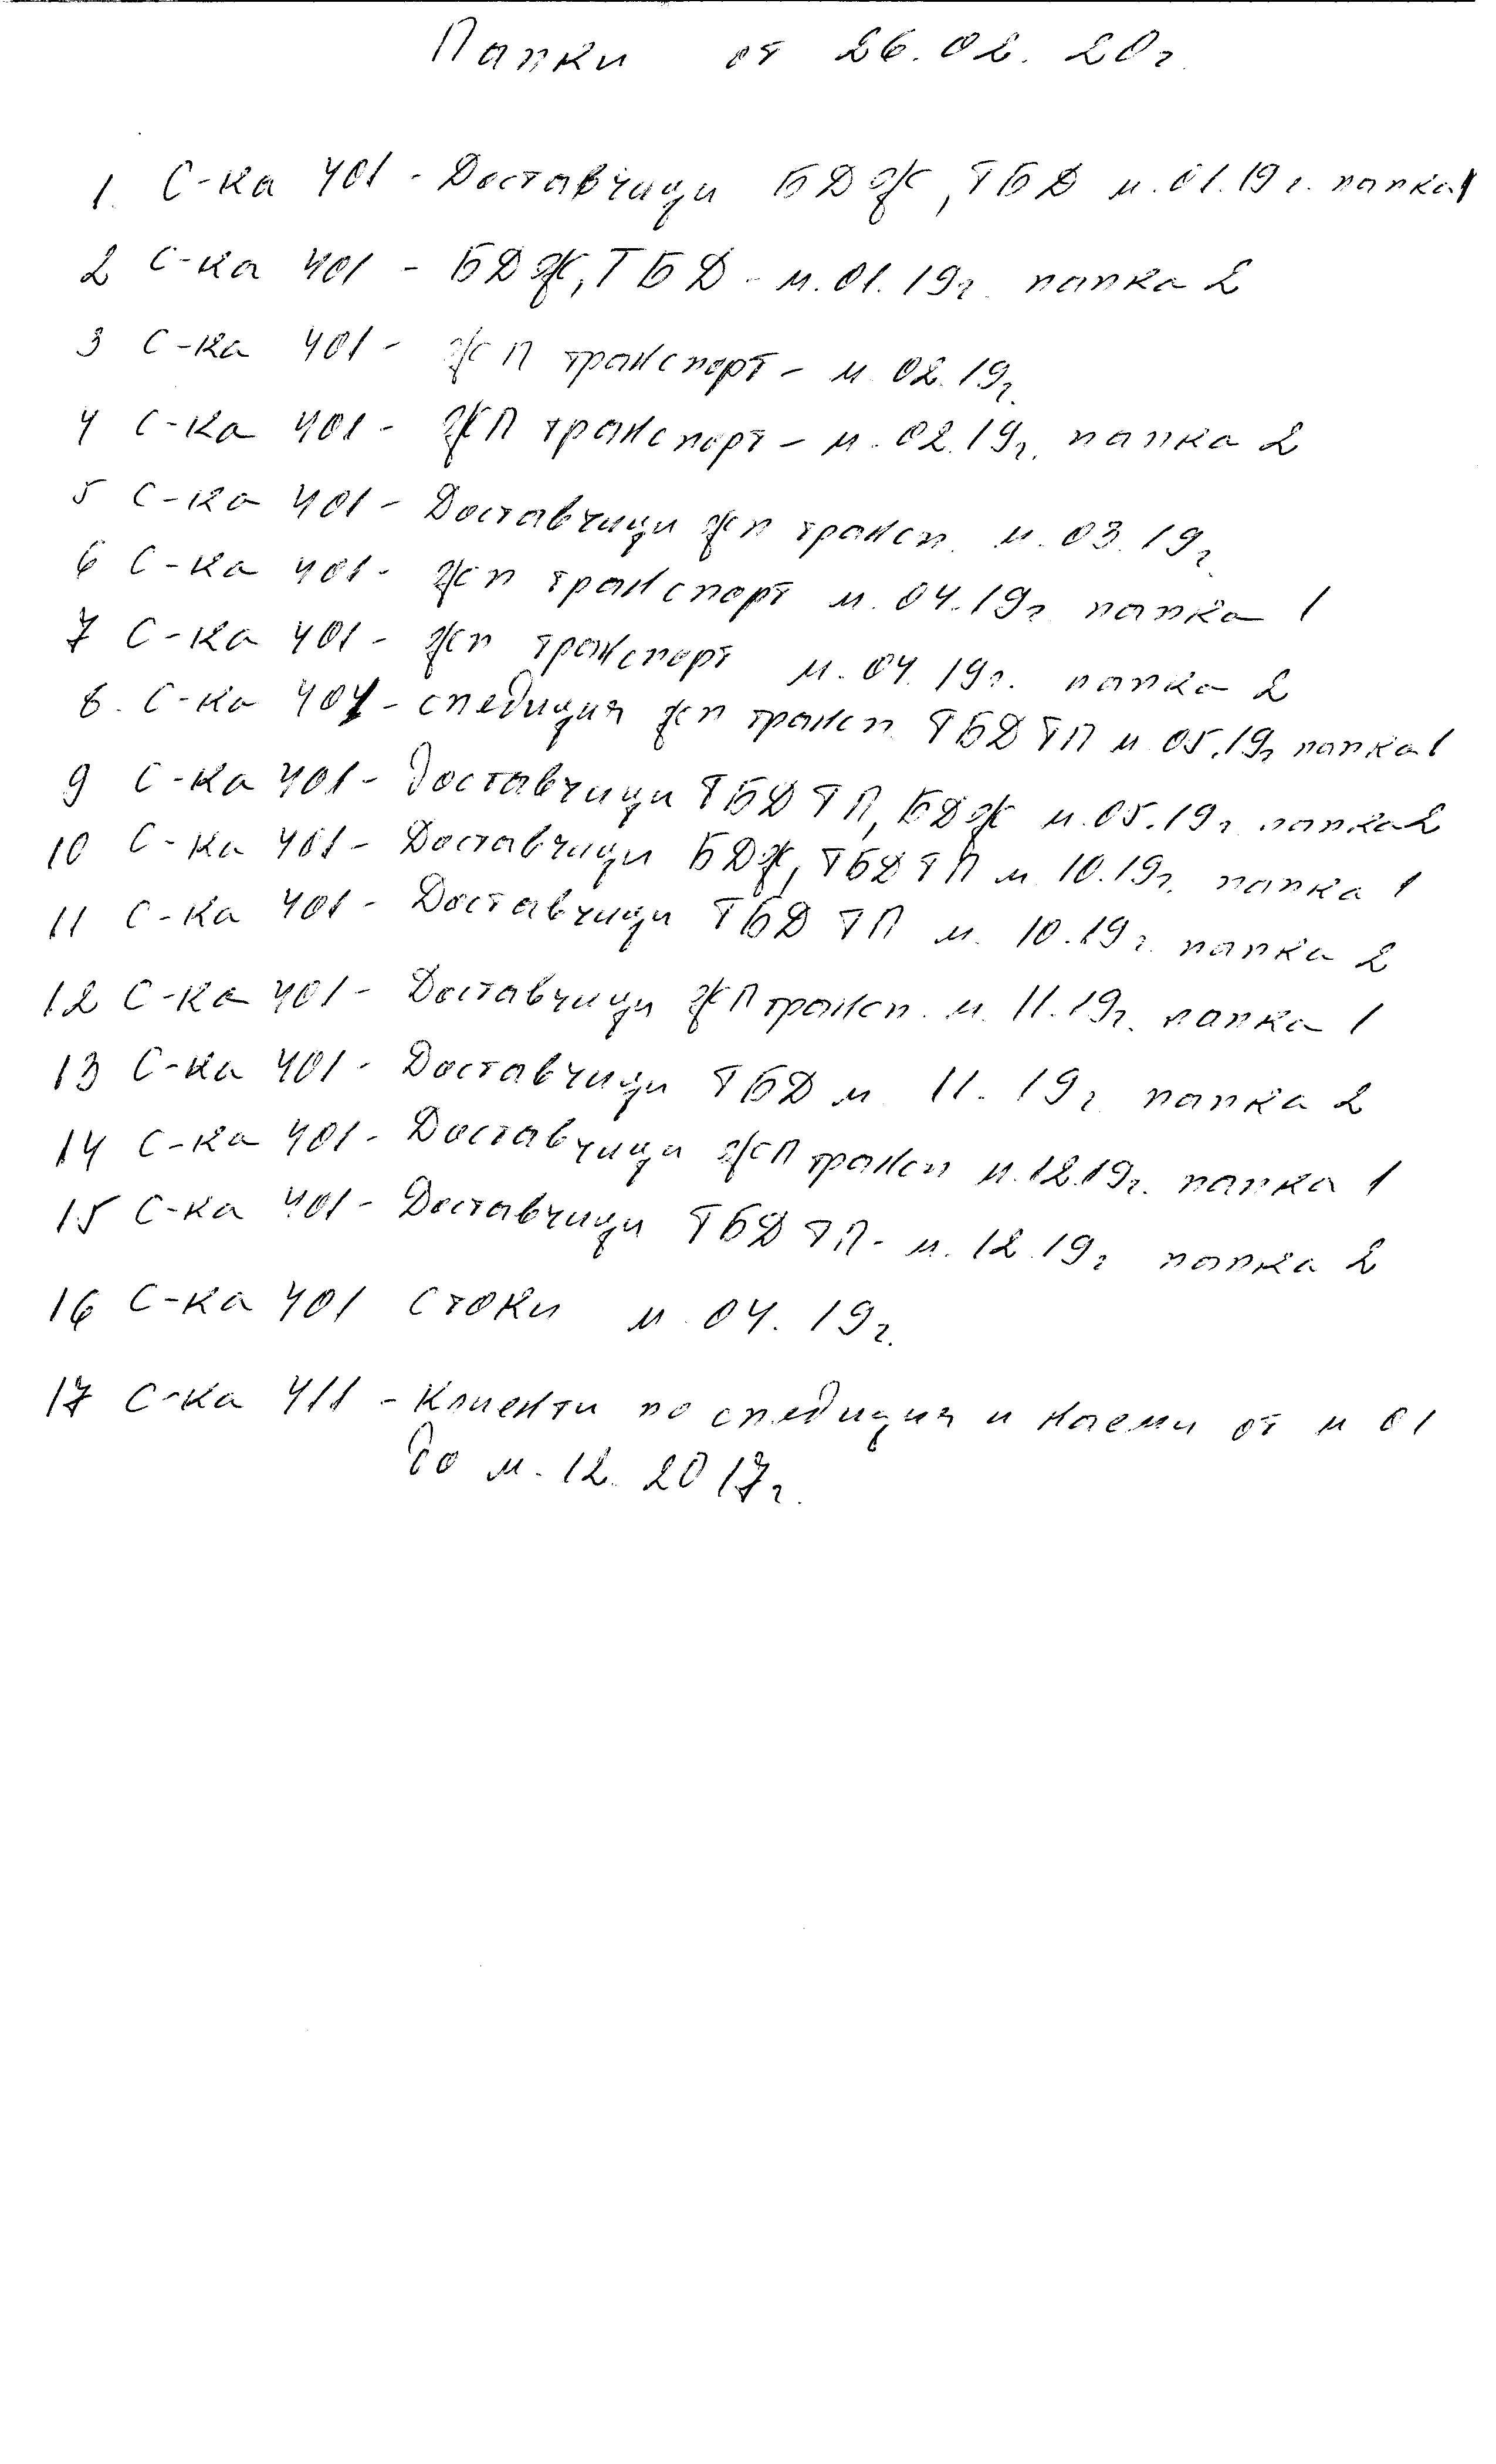 Папки от 26.02.20г.
1. С-ка 401 - Доставчици БДЖ, ТБД м.01.19г. папка 1
2 С-ка 401 - БДЖ, ТБД - м.01.19г. папка 2
3 С-ка 401 - ЖП транспорт - м.02.19г.
4 С-ка 401 - ЖП транспорт - м.02.19г. папка 2
5 С-ка 401 - Доставчици жп трансп. м.03.19г.
6 С-ка 401 - жп транспорт м.04.19г. папка 1
7 С-ка 401 - жп транспорт м.04.19г. папка 2
8. С-ка 401 - спедиция жп трансп. ТБД ТП м 05.19г папка 1
9 С-ка 401 - Доставчици ТБД ТП, БДЖ м.05.19г. папка 2
10 С-ка 401 - Доставчици БДЖ, ТБД ТП м 10.19г. папка 1
11 С-ка 401 - Доставчици ТБД ТП м. 10.19г. папка 2
12 С-ка 401 - Доставчици ЖП трансп. м. 11.19г. папка 1
13 С-ка 401 - Доставчици ТБД м 11.19г. папка 2
14 С-ка 401 - Доставчици ЖП трансп м.12.19г. папка 1
15 С-ка 401 - Доставчици ТБД ТП - м.12.19г папка 2
16 С-ка 401 Стоки м.04.19г.
17 С-ка 411 - Клиенти по спедиция и наеми от м 01
до м.12.2017г.